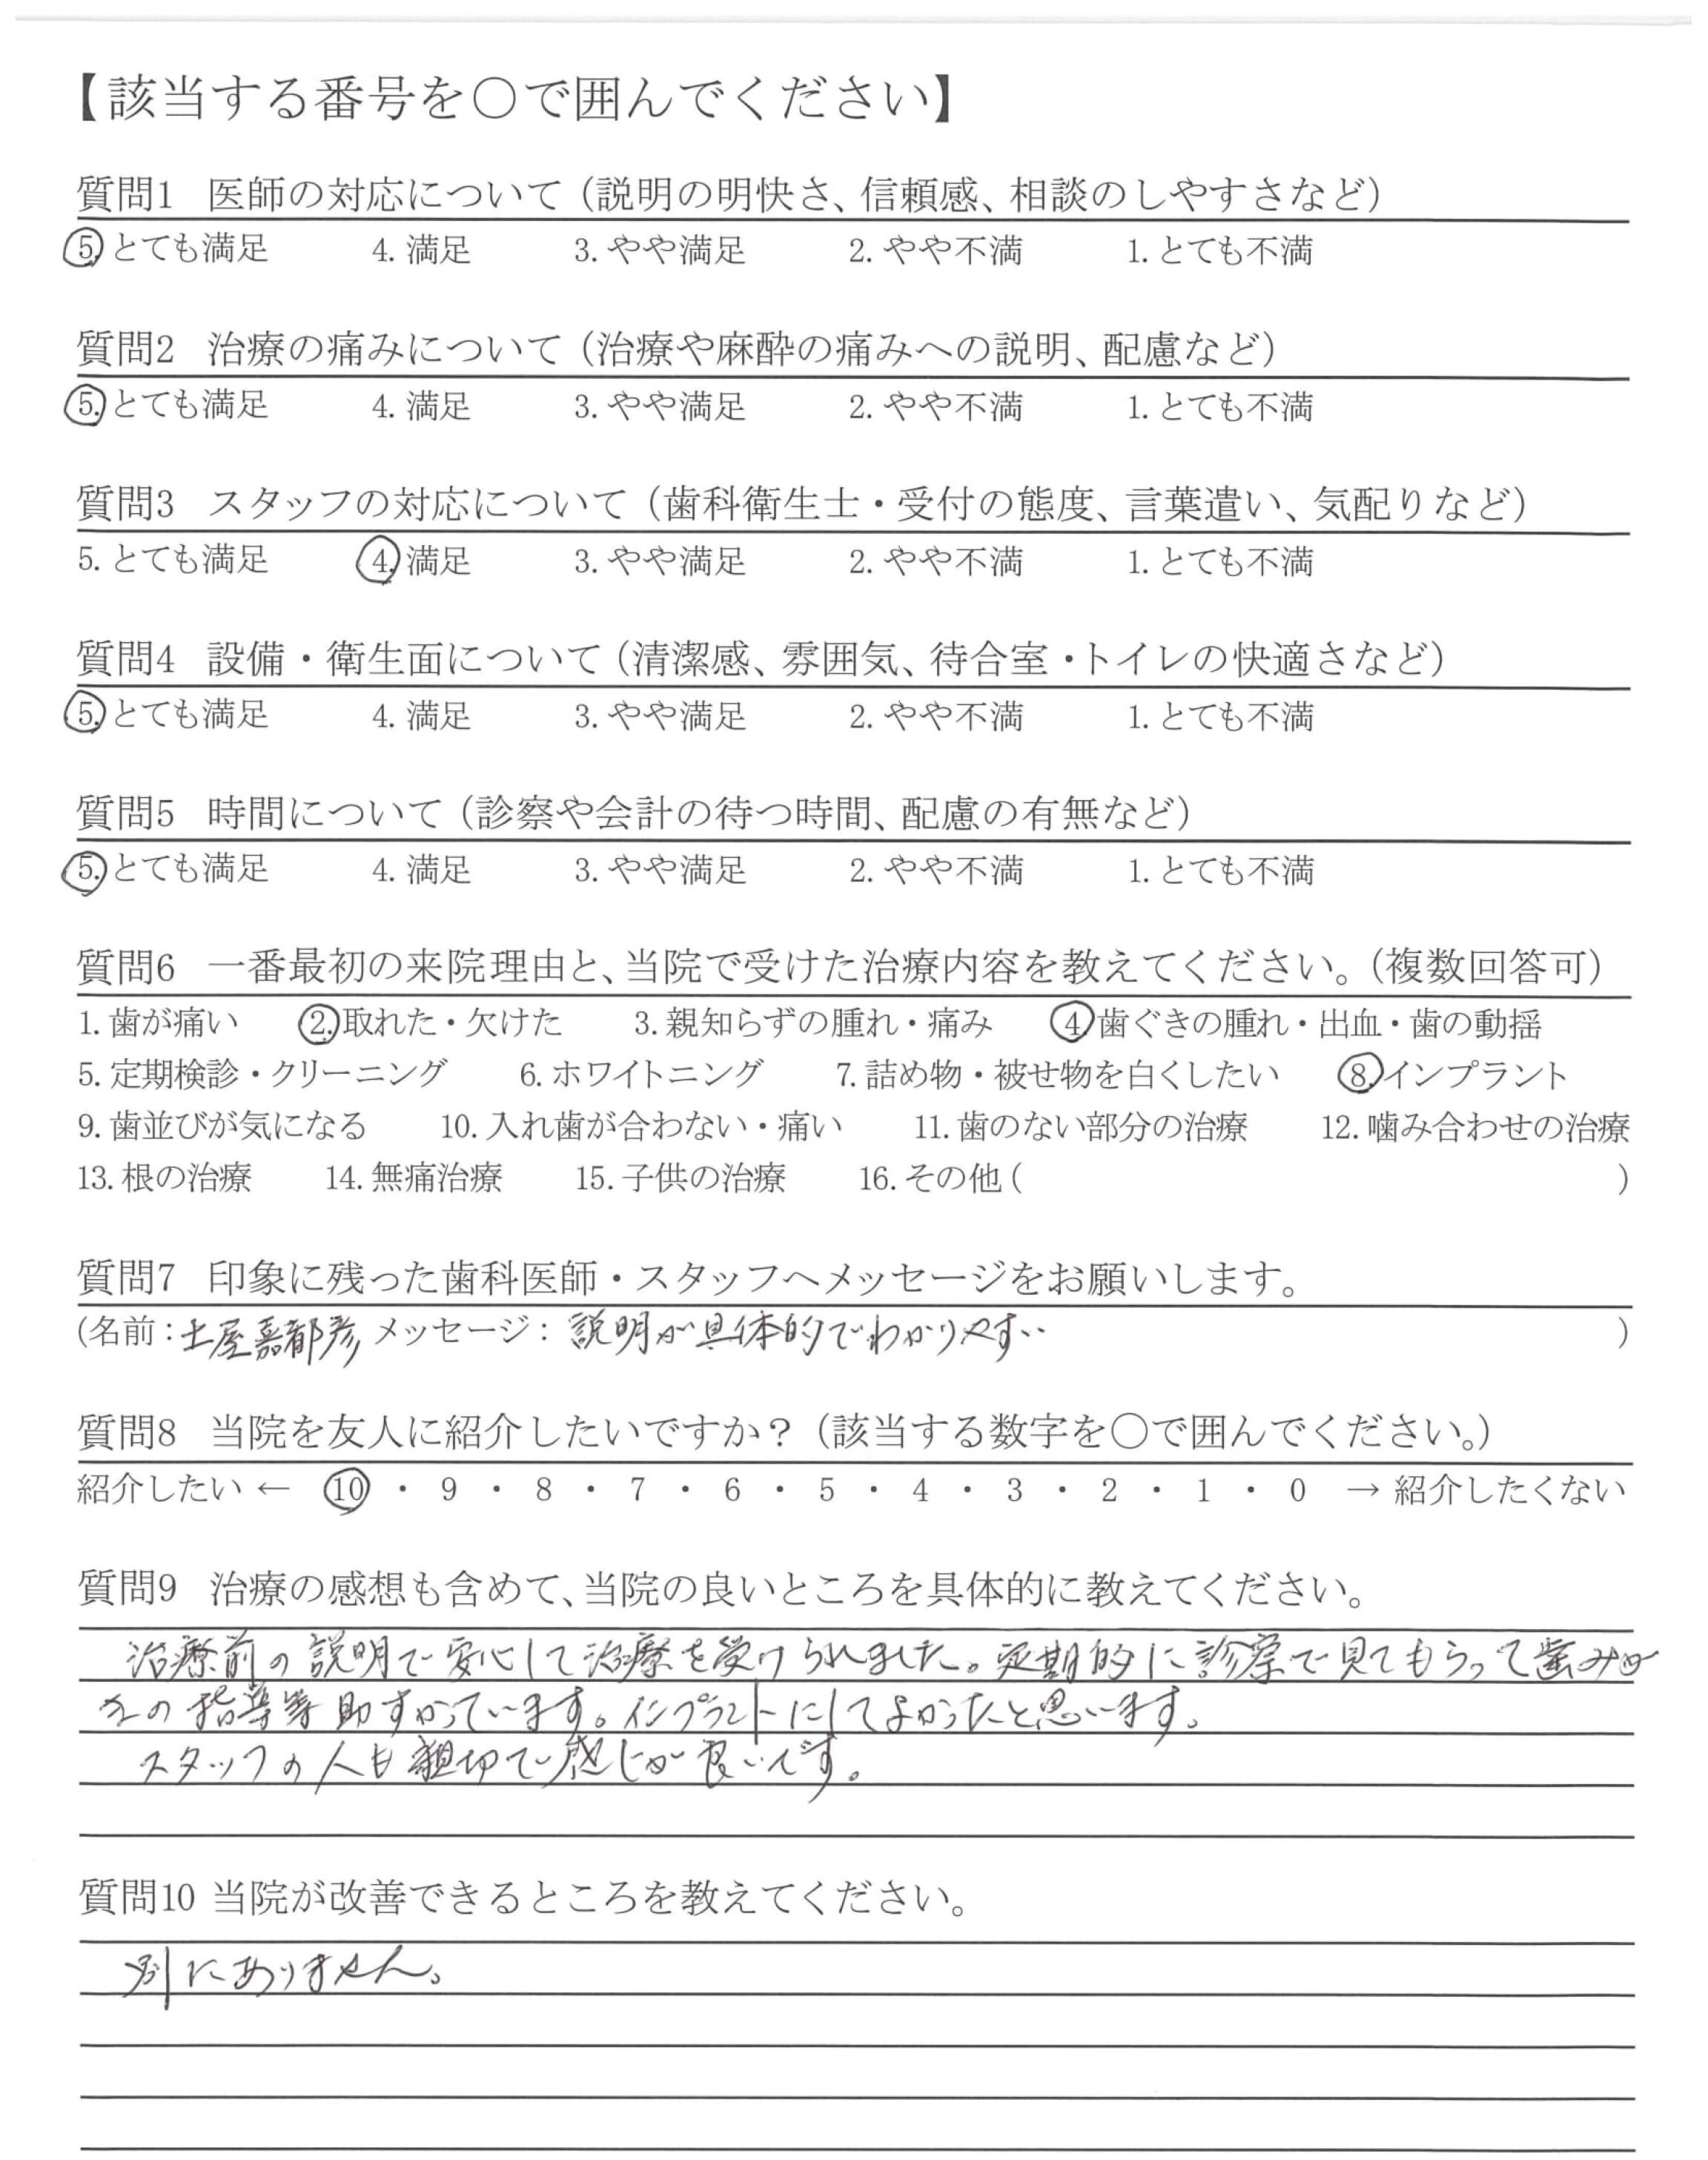 【該当する番号を○で囲んでください】
質問1 医師の対応について（説明の明快さ、信頼感、相談のしやすさなど）
5.とても満足 4.満足 3.やや満足 2.やや不満 1.とても不満
質問2 治療の痛みについて（治療や麻酔の痛みへの説明、配慮など）
5.とても満足 4.満足 3.やや満足 2.やや不満 1.とても不満
質問3 スタッフの対応について（歯科衛生士・受付の態度、言葉遣い、気配りなど）
5.とても満足 4.満足 3.やや満足 2.やや不満 1.とても不満
質問4 設備・衛生面について（清潔感、雰囲気、待合室・トイレの快適さなど）
5.とても満足 4.満足 3.やや満足 2.やや不満 1.とても不満
質問5 時間について（診察や会計の待つ時間、配慮の有無など）
5.とても満足 4.満足 3.やや満足 2.やや不満 1.とても不満
質問6 一番最初の来院理由と、当院で受けた治療内容を教えてください。（複数回答可）
1.歯が痛い 2.取れた・欠けた 3.親知らずの腫れ・痛み 4.歯ぐきの腫れ・出血・歯の動揺
5.定期検診・クリーニング 6.ホワイトニング 7.詰め物・被せ物を白くしたい 8.インプラント
9.歯並びが気になる 10.入れ歯が合わない・痛い 11.歯のない部分の治療 12.噛み合わせの治療
13.根の治療 14.無痛治療 15.子供の治療 16.その他（ ）
質問7 印象に残った歯科医師・スタッフへメッセージをお願いします。
（名前：土屋嘉都彦 メッセージ：説明が具体的でわかりやすい ）
質問8 当院を友人に紹介したいですか？（該当する数字を○で囲んでください。）
紹介したい ← 10 ・ 9 ・ 8 ・ 7 ・ 6 ・ 5 ・ 4 ・ 3 ・ 2 ・ 1 ・ 0 → 紹介したくない
質問9 治療の感想も含めて、当院の良いところを具体的に教えてください。
治療前の説明で安心して治療を受けられました。定期的に診察で見てもらって歯みが
きの指導等助すかっています。インプラントにしてよかったと思います。
スタッフの人も親切で感じが良いです。
質問10 当院が改善できるところを教えてください。
別にありません。